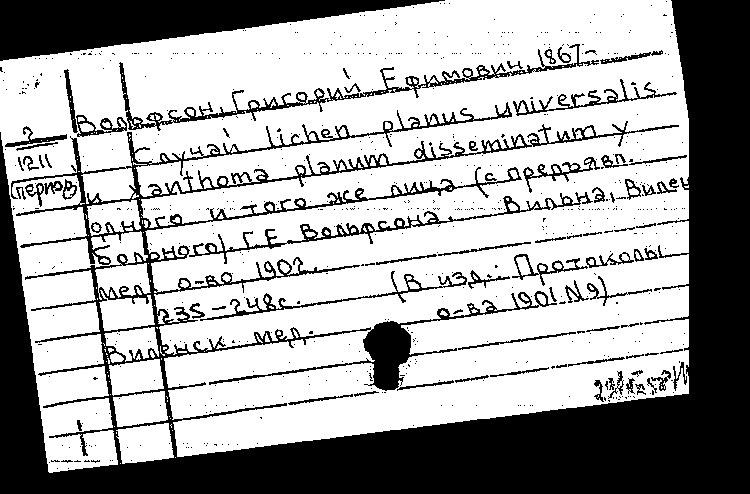 Вольфсон, Григорий Ефимович, 1867-
?
1211
(перпов)
Случай lichen planus universalis
и xanthoma planum disseminatum у
одного и того же лица (с предъявл.
больного). Г.Е. Вольфсона. Вильна, Вилен
мед. о-во, 1902.
235-248 с. (В изд.: Протоколы
о-ва 1901 N 9).
Виленск. мед.